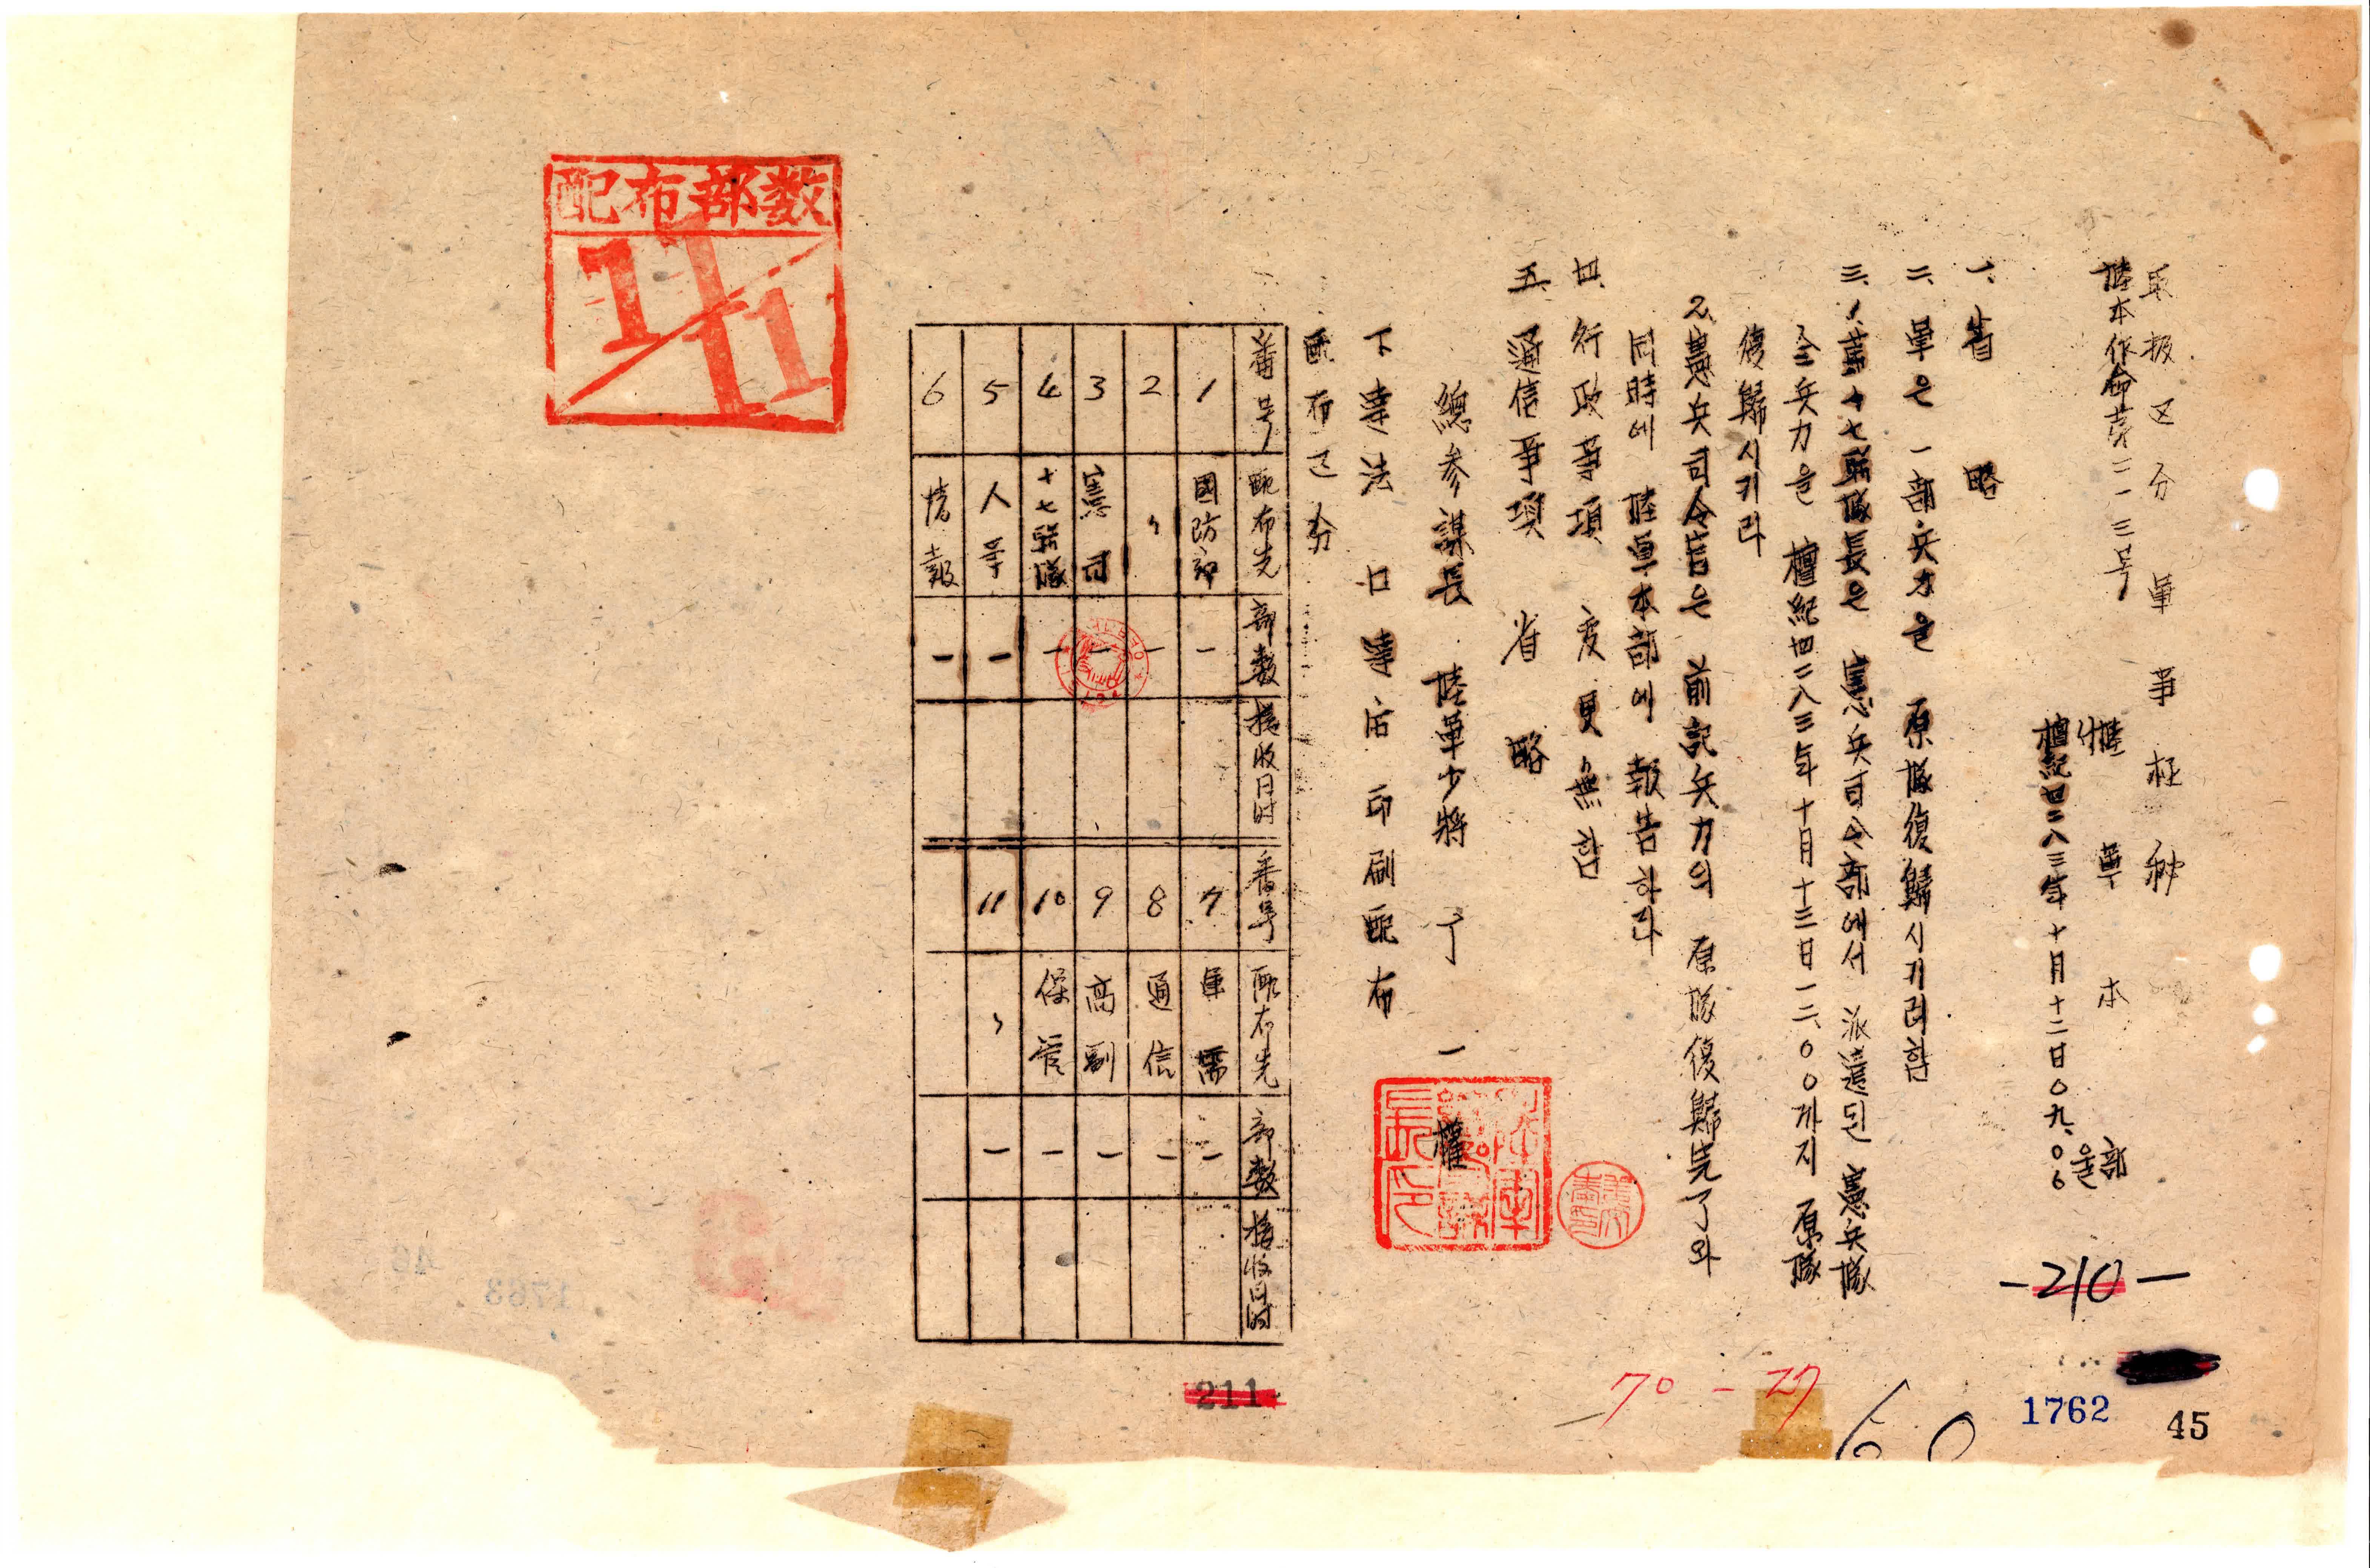 取扱区分 軍事極秘
陸本作命第二一三号
陸軍本部
서울
檀紀四二八三年十月十二日0九.06
一、省略
二、軍은 一部兵力을 原隊復歸시키려함
三、1、第十七聯隊長은 憲兵司令部에서 派遣된 憲兵隊
全兵力을 檀紀四二八三年十月十三日一二、00까지 原隊
復歸시키라
2、憲兵司令官은 前記兵力의 原隊復歸完了와
同時에 陸軍本部에 報告하라
四、行政事項 変更無함
五、通信事項 省略
總参謀長 陸軍少將 丁一權
下達法 口達后印刷配布
配布区分
番号 配布先 部数 接收日时 番号 配布先 部数 接收日时
1 國防部 一 7 軍需 一
2 〃 一 8 通信 一
3 憲司 一 9 高副 一
4 十七聯隊 一 10 保管 一
5 人事 一 11 〃 一
6 情報 一
配布部数
11/11
-210-
211
70-27
60
1762
45